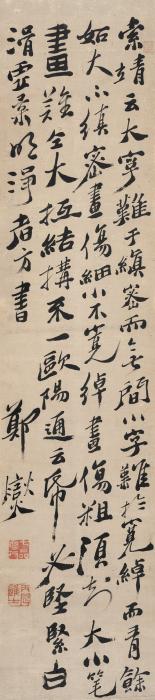 索靖云大字難于縝密而無間小字難於寬綽而有餘
如大不縝密畫傷細小不寬綽畫傷粗須知大小筆
畫難仝大抵結搆不一歐陽通云紙必堅緊白
滑墨求明淨者方書
鄭燮